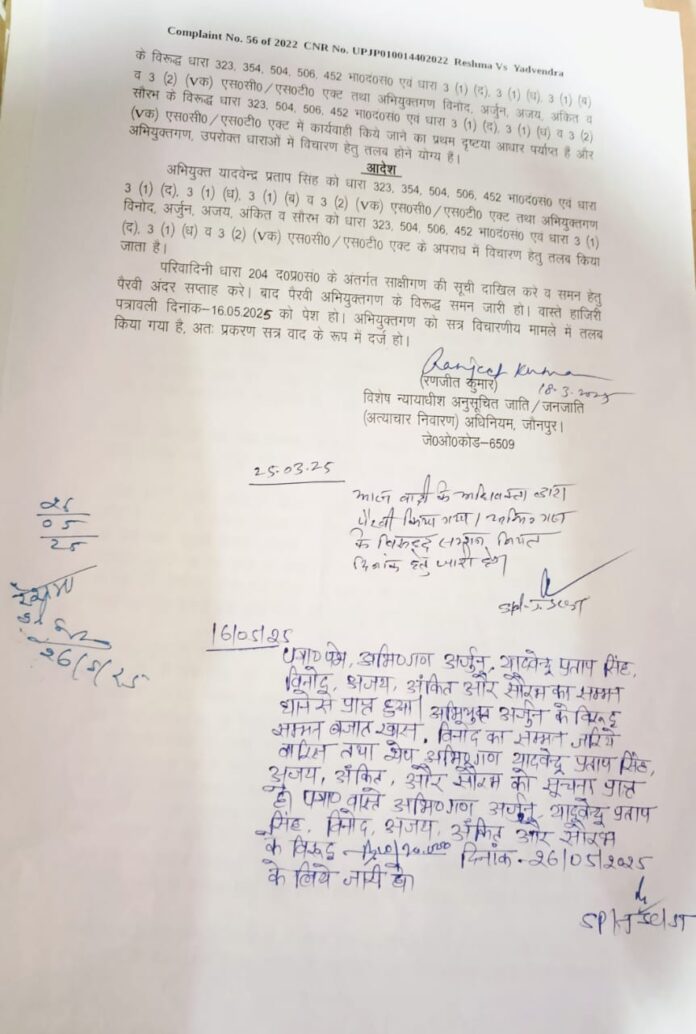 Complaint No. 56 of 2022 CNR No. UPJP010014402022 Reshma Vs Yadvendra
के विरूद्ध धारा 323, 354, 504, 506, 452 भा0द0सं0 एवं धारा 3 (1) (द), 3 (1) (ध), 3 (1) (ब)
व 3 (2) (Vक) एस0सी0/एस0टी0 एक्ट तथा अभियुक्तगण विनोद, अर्जुन, अजय, अंकित व
सौरभ के विरूद्ध धारा 323, 504, 506, 452 भा0द0सं0 एवं धारा 3 (1) (द), 3 (1) (ध) व 3 (2)
(Vक) एस0सी0/एस0टी0 एक्ट में कार्यवाही किये जाने का प्रथम दृष्टया आधार पर्याप्त है और
अभियुक्तगण, उपरोक्त धाराओं में विचारण हेतु तलब होने योग्य हैं।
आदेश
अभियुक्त यादवेन्द्र प्रताप सिंह को धारा 323, 354, 504, 506, 452 भा0द0सं0 एवं धारा
3 (1) (द), 3 (1) (ध), 3 (1) (ब) व 3 (2) (Vक) एस0सी0/एस0टी0 एक्ट तथा अभियुक्तगण
विनोद, अर्जुन, अजय, अंकित व सौरभ को धारा 323, 504, 506, 452 भा0द0सं0 एवं धारा 3 (1)
(द), 3 (1) (ध) व 3 (2) (Vक) एस0सी0/एस0टी0 एक्ट के अपराध में विचारण हेतु तलब किया
जाता है।
परिवादिनी धारा 204 द0प्र0सं0 के अंतर्गत साक्षीगण की सूची दाखिल करे व समन हेतु
पैरवी अंदर सप्ताह करे। बाद पैरवी अभियुक्तगण के विरूद्ध समन जारी हो। वास्ते हाजिरी
पत्रावली दिनांक-16.05.2025 को पेश हो। अभियुक्तगण को सत्र विचारणीय मामले में तलब
किया गया है, अतः प्रकरण सत्र वाद के रूप में दर्ज हो।
Ranjeet Kumar
(रणजीत कुमार) 18-3-2025
विशेष न्यायाधीश अनुसूचित जाति/जनजाति
(अत्याचार निवारण) अधिनियम, जौनपुर।
जे0ओ0कोड-6509
25.03.25
आज वादी के अधिवक्ता द्वारा
पैरवी किया गया।
के विरूद्ध सम्मन नियत
दिनांक हेतु जारी हो।
26
05
25
26/5/25
16/05/25
पत्रा0 पेश, अभि0गण अर्जुन, यादवेन्द्र प्रताप सिंह,
विनोद, अजय, अंकित और सौरभ का सम्मन
थाने से प्राप्त हुया। अभियुक्त अर्जुन के विरूद्ध
सम्मन बजात खास, विनोद का सम्मन जरिये
वारिस तथा शेष अभि0गण यादवेन्द्र प्रताप सिंह,
अजय, अंकित, और सौरभ को सूचना प्राप्त
है। पत्रा0 वास्ते अभि0गण अर्जुन, यादवेन्द्र प्रताप
सिंह, विनोद, अजय, अंकित और सौरभ
के विरूद्ध दिनांक-26/05/2025
के लिये जारी हो